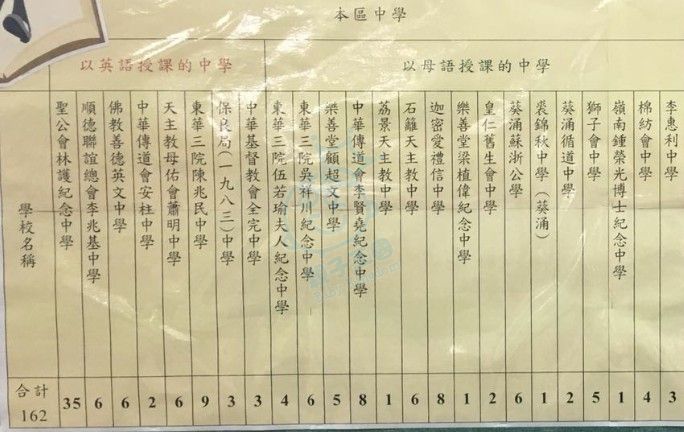 本區中學
以英語授課的中學
以母語授課的中學
學校名稱
聖公會林護紀念中學
順德聯誼總會李兆基中學
佛教善德英文中學
中華傳道會安柱中學
天主教母佑會蕭明中學
東華三院陳兆民中學
保良局(一九八三)中學
中華基督教會全完中學
東華三院伍若瑜夫人紀念中學
東華三院吳祥川紀念中學
樂善堂顧超文中學
中華傳道會李賢堯紀念中學
荔景天主教中學
石籬天主教中學
迦密愛禮信中學
樂善堂梁植偉紀念中學
皇仁舊生會中學
葵涌蘇浙公學
裘錦秋中學(葵涌)
葵涌循道中學
獅子會中學
嶺南鍾榮光博士紀念中學
棉紡會中學
李惠利中學
合計
162
35 6 6 2 6 9 3 3 4 6 5 8 1 6 8 1 2 6 1 2 5 1 4 3